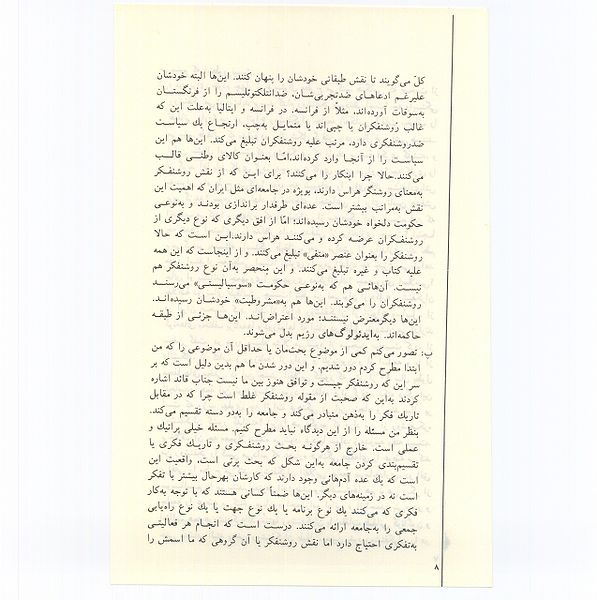 کلّ می‌گویند تا نقش طبقاتی خودشان را پنهان کنند. این‌ها البته خودشان
علیرغم ادعاهای ضدتجربی‌شان، ضدانتلکتوئلیسم را از فرنگستان
به‌سوقات آورده‌اند، مثلاً از فرانسه. در فرانسه و ایتالیا به‌علت این که
غالب روشنفکران یا چپی‌اند یا متمایل به‌چپ، ارتجاع یك سیاست
ضدروشنفکری دارد، مرتب علیه روشنفکران تبلیغ می‌کند. این‌ها هم این
سیاست را از آنجا وارد کرده‌اند،امّا بعنوان کالای وطنی قالب
می‌کنند.حالا چرا اینکار را می‌کنند؟ برای این که از نقش روشنفکر
به‌معنای روشنگر هراس دارند، بویژه در جامعه‌ای مثل ایران که اهمیت این
نقش به‌مراتب بیشتر است. عده‌ای طرفدار براندازی بودند و به‌نوعی
حکومت دلخواه خودشان رسیده‌اند؛ امّا از افق دیگری که نوع دیگری از
روشنفکران عرضه کرده و می‌کنند هراس دارند.این‌است که حالا
روشنفکر را بعنوان عنصر «منفی» تبلیغ می‌کنند. و از اینجاست که این همه
علیه کتاب و غیره تبلیغ می‌کنند. و این منحصر به‌آن نوع روشنفکر هم
نیست. آن‌هائی هم که به‌نوعی حکومت «سوسیالیستی» می‌رسند
روشنفکران را می‌کوبند. این‌ها هم به«مشروطیت» خودشان رسیده‌اند.
این‌ها دیگرمعترض نیستند؛ مورد اعتراض‌اند. این‌ها جزئی از طبقه
حاکمه‌اند. به‌ایدئولوگ‌های رژیم بدل می‌شوند.
ب: تصور می‌کنم کمی از موضوع بحث‌مان یا حداقل آن موضوعی را که من
ابتدا مطرح کردم دور شدیم. و این دور شدن ما هم بدین دلیل است که بر
سر این که روشنفکر چیست و توافق هنوز بین ما نیست جناب قائد اشاره
کردند به‌این که صحبت از مقوله روشنفکر غلط است چرا که در مقابل
تاریك فکر را به‌ذهن متبادر می‌کند و جامعه را به‌دو دسته تقسیم می‌کند.
بنظر من مسئله را از این دیدگاه نباید مطرح کنیم. مسئله خیلی پراتیك و
عملی است. خارج از هرگونه بحث روشنفکری و تاریك فکری یا
تقسیم‌بندی کردن جامعه به‌این شکل که بحث پرتی است، واقعیت این
است که یك عده آدم‌هائی وجود دارند که کارشان بهرحال بیشتر با تفکر
است نه در زمینه‌های دیگر. این‌ها ضمناً کسانی هستند که با توجه به‌کار
فکری که می‌کنند یك نوع برنامه یا یك نوع جهت یا یك نوع راه‌یابی
جمعی را به‌جامعه ارائه می‌کنند. درست است که انجام هر فعالیتی
به‌تفکری احتیاج دارد اما نقش روشنفکر یا آن گروهی که ما اسمش را
۸